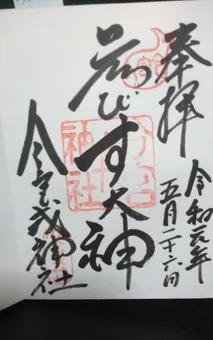 奉拝
令和元年
五月二十六日
ゑびす大神
今宮戎神社